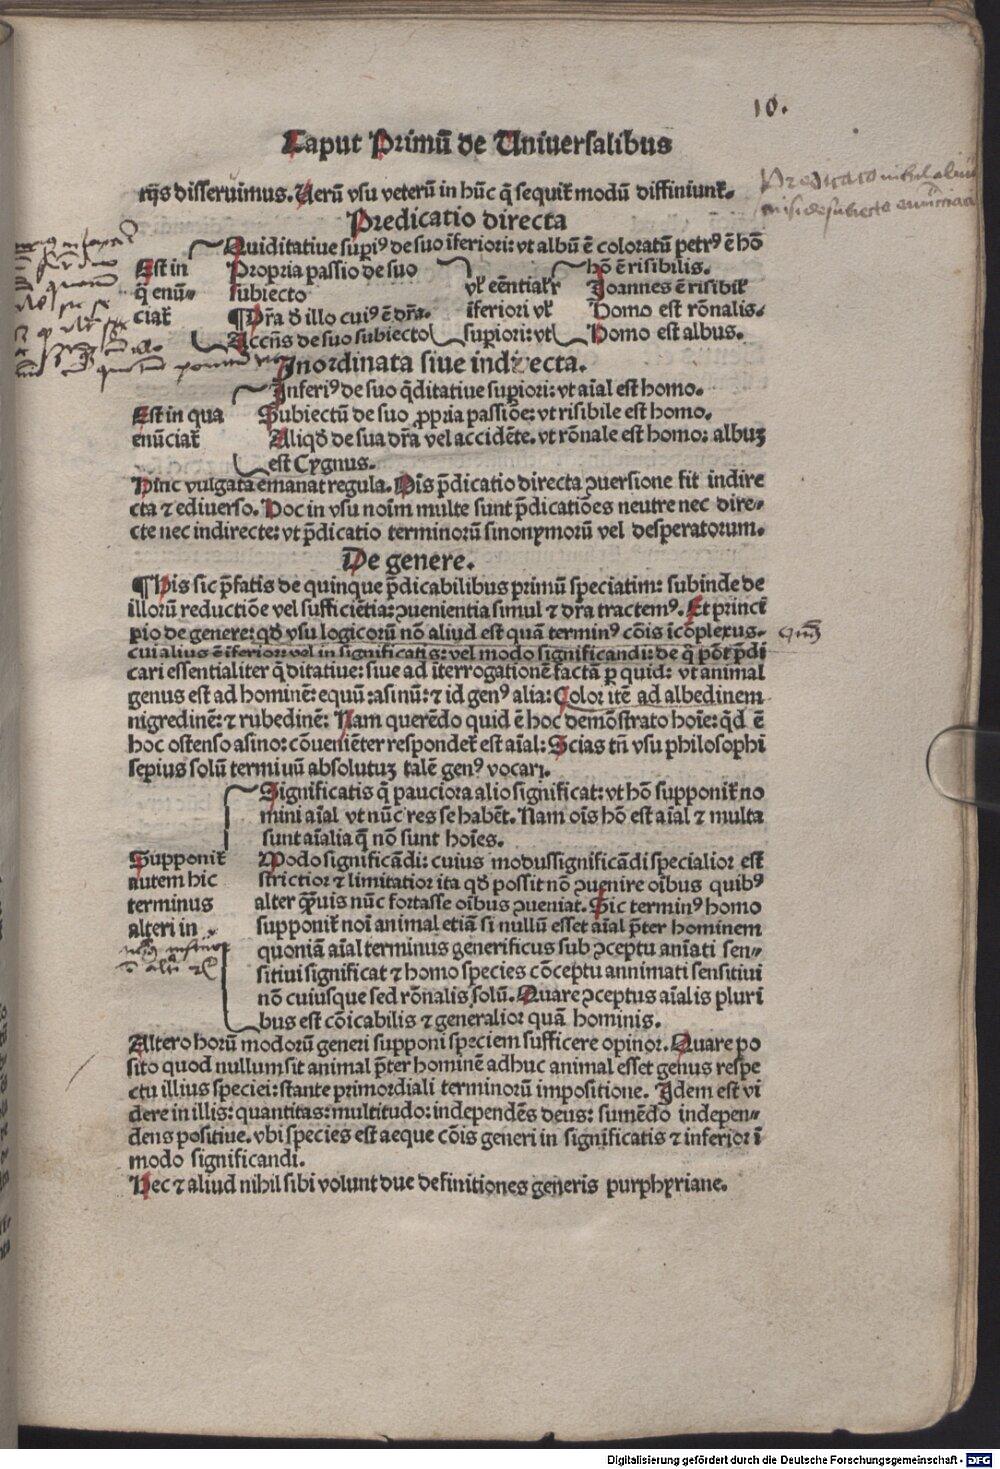 10.
Caput Primū de Uniuersalibus
rijs disseruimus. Uerū vsu veterū in hūc q̄ sequit᷑ modū diffiniunt᷑.
Predicatio directa
Est in
q̄ enū-
ciat᷑
Quiditatiue supi⁹ de suo īferiori: vt albū ē coloratū petr⁹ ē hō
Propria passio de suo
subiecto
¶ Dr̄a d̄ illo cui⁹ ē dr̄a.
Accn̄s de suo subiecto
vl᷑ eēntial᷑r
īferiori vl᷑
supiori: vt
hō ē risibilis.
Joannes ē risibil᷑
Homo est rōnalis.
Homo est albus.
Inordinata siue indirecta.
Est in qua
enūciat᷑
Inferi⁹ de suo q̄ditatiue supiori: vt aīal est homo.
Subiectū de suo ꝓpria passiōe: vt risibile est homo.
Aliqd̄ de sua dr̄a vel accidēte. vt rōnale est homo: albuʒ
est Cygnus.
Hinc vulgata emanat regula. Ois p̄dicatio directa ꝯuersione fit indire
cta ⁊ ediuerso. Hoc in vsu noīm multe sunt p̄dicatiōes neutre nec dire-
cte nec indirecte: vt p̄dicatio terminorū sinonymorū vel desperatorum.
De genere.
¶ His sic p̄fatis de quinque p̄dicabilibus primū speciatim: subinde de
illorū reductiōe vel sufficiētia: ꝯuenientia simul ⁊ dr̄a tractem⁹. Et princi
pio de genere: qd̄ vsu logicorū nō aliud est quā termin⁹ cōis īcōplexus.
cui alius ē īferior: vel in significatis: vel modo significandi: de q̄ pōt p̄di
cari essentialiter q̄ditatiue: siue ad īterrogationē factā ꝑ quid: vt animal
genus est ad hominē: equū: asinū: ⁊ id gen⁹ alia: Color itē ad albedinem
nigredinē: ⁊ rubedinē: Nam querēdo quid ē hoc demōstrato hoīe: q̄d ē
hoc ostenso asino: cōueniēter respondet᷑ est aīal: Scias tn̄ vsu philosophi
sepius solū termiuū absolutuʒ talē gen⁹ vocari.
Supponit᷑
autem hic
terminus
alteri in
Significatis q̄ pauciora alio significat: vt hō supponit᷑ no
mini aīal vt nūc res se habēt. Nam oīs hō est aīal ⁊ multa
sunt aīalia q̄ nō sunt hoīes.
Modo significādi: cuius modussignificādi specialior est
strictior ⁊ limitatior ita qd̄ possit nō ꝯuenire oībus quib⁹
alter q̄uis nūc fortasse oībus ꝯueniat. Sic termin⁹ homo
supponit᷑ noī animal etiā si nullū esset aīal p̄ter hominem
quoniā aīal terminus generificus sub ꝯceptu aniati sen-
sitiui significat ⁊ homo species cōceptu annimati sensitiui
nō cuiusque sed rōnalis solū. Quare ꝯceptus aīalis pluri
bus est cōicabilis ⁊ generalior quā hominis.
Altero horū modorū generi supponi speciem sufficere opinor. Quare po
sito quod nullum sit animal p̄ter hominē adhuc animal esset genus respe
ctu illius speciei: stante primordiali terminorū impositione. Idem est vi
dere in illis: quantitas: multitudo: independēs deus: sumēdo indepen-
dens positiue. vbi species est aeque cōis generi in significatis ⁊ inferior ī
modo significandi.
Hec ⁊ aliud nihil sibi volunt due definitiones generis purphyriane.
Digitalisierung gefördert durch die Deutsche Forschungsgemeinschaft - DFG